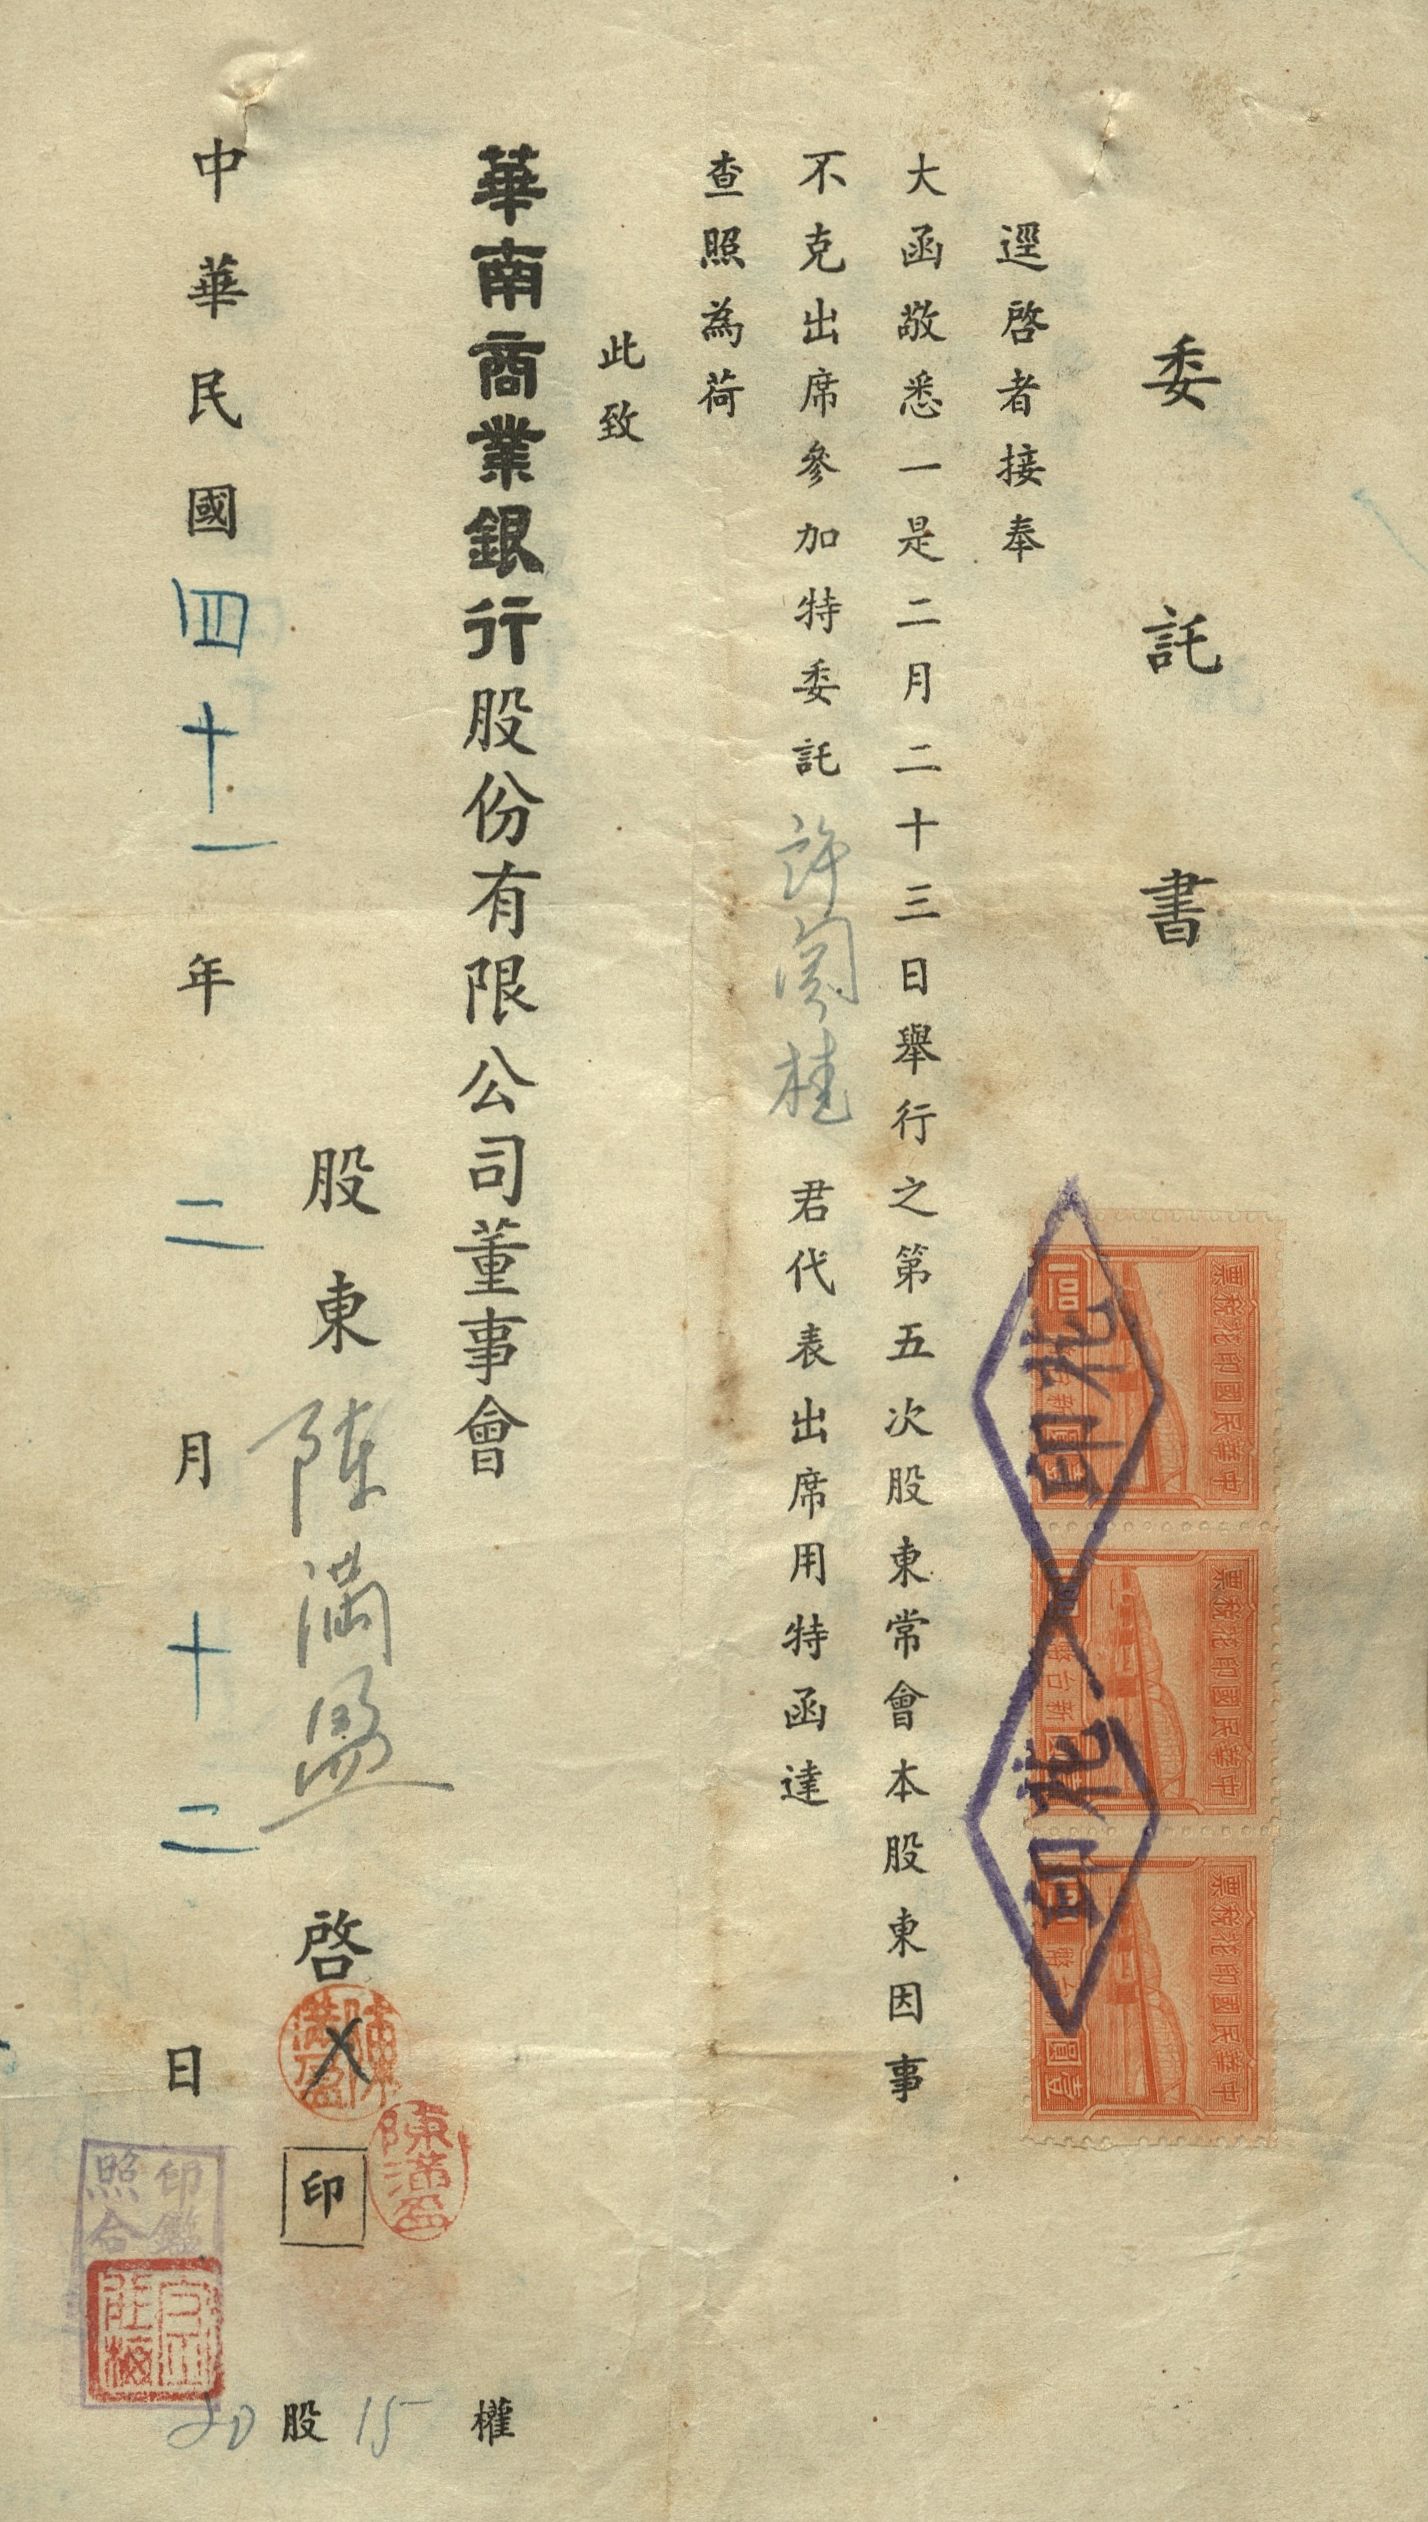 委託書
逕啓者接奉
大函敬悉一是二月二十三日舉行之第五次股東常會本股東因事
不克出席參加特委託許蘭桂君代表出席用特函達
查照為荷
此致
華南商業銀行股份有限公司董事會
股東陳滿盈啓
印
中華民國四十一年二月十二日
20股15權
中華民國印花稅票
中華民國印花稅票
中華民國印花稅票
印花
印花
陳滿盈
陳滿盈
印鑑
照合